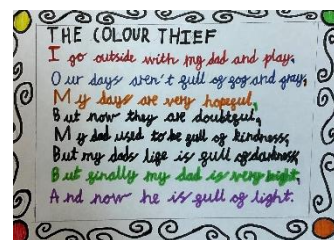 THE COLOUR THIEF
I go outside with my dad and play,
Our days aren't full of fog and gray,
My days are very hopeful,
But now they are doubtful,
My dad used to be full of kindness,
But my dads life is full of darkness,
But finally my dad is very bight,
And now he is full of light.